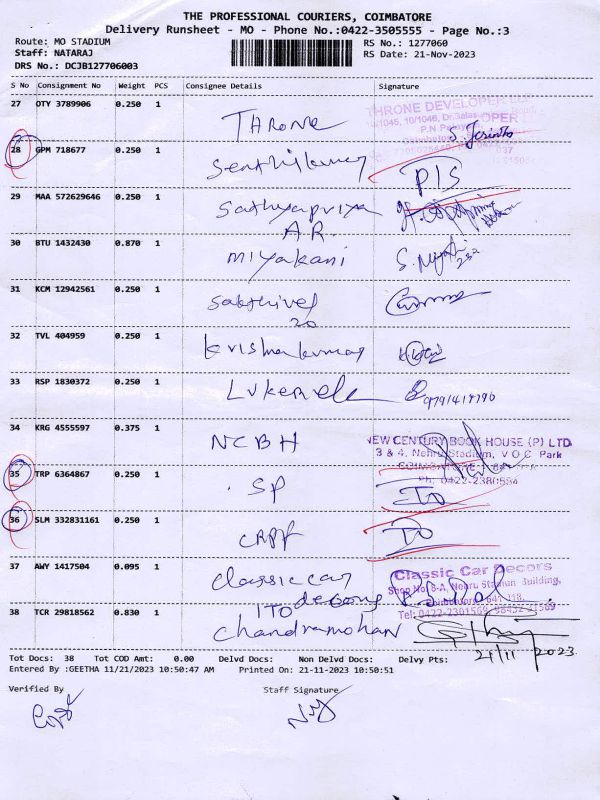 THE PROFESSIONAL COURIERS, COIMBATORE
Delivery Runsheet - MO - Phone No.:0422-3505555 - Page No.:3
Route: MO STADIUM
RS No.: 1277060
Staff: NATARAJ
RS Date: 21-Nov-2023
DRS No.: DCJB127706003
S No Consignment No Weight PCS Consignee Details Signature
27 OTY 3789906 0.250 1
Throne
THRONE DEVELOPER
28 GPM 718677 0.250 1
Senthilkumar
P/S
29 MAA 572629646 0.250 1
Sathyapriya
A.R.
30 BTU 1432430 0.870 1
Miyakani
31 KCM 12942561 0.250 1
Sakthivel
20
32 TVL 404959 0.250 1
Krishnakumar
33 RSP 1830372 0.250 1
34 KRG 4555597 0.375 1
NCBH
NEW CENTURY BOOK HOUSE (P) LTD
3 & 4, Nehru Stadium, V O C Park
COIMBATORE
Ph: 0422-2380554
35 TRP 6364867 0.250 1
SP
ITO
36 SLM 332831161 0.250 1
CRPF
37 AWY 1417504 0.095 1
Classic car
decors
Classic Car Decors
38 TCR 29818562 0.830 1
ITO
Chandramohan
21/11 2023
Tot Docs: 38 Tot COD Amt: 0.00 Delvd Docs: Non Delvd Docs: Delvy Pts:
Entered By :GEETHA 11/21/2023 10:50:47 AM Printed On: 21-11-2023 10:50:51
Verified By Staff Signature